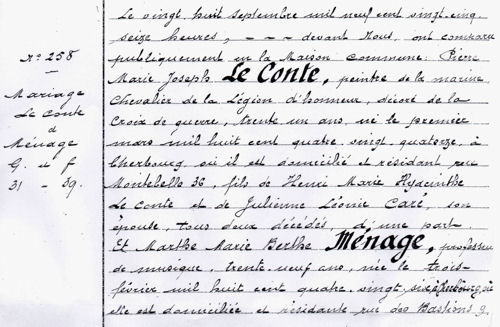 N° 258
Mariage
Le Conte
&
Ménage
G. & F
31 - 39.
Le vingt huit septembre mil neuf cent vingt-cinq,
seize heures, - - - devant Nous, ont comparu
publiquement en la Maison commune: Pierre
Marie Joseph Le Conte, peintre de la marine
Chevalier de la Légion d'honneur, décoré de la
Croix de guerre, trente un ans, né le premier
mars mil huit cent quatre vingt quatorze, à
Cherbourg où il est domicilié et résidant rue
Montebello 36, fils de Henri Marie Hyacinthe
Le Conte et de Julienne Léonie Caré, son
épouse, tous deux décédés, d'une part.
Et Marthe Marie Berthe Ménage, professeur
de musique, trente neuf ans, née le trois-
février mil huit cent quatre vingt six à Cherbourg, où
elle est domiciliée et résidante rue des Bastions 9,